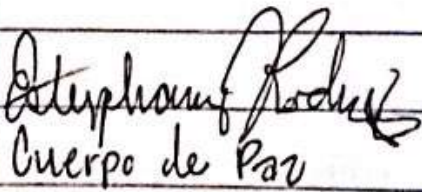 Stephany Rodrz
Cuerpo de Paz